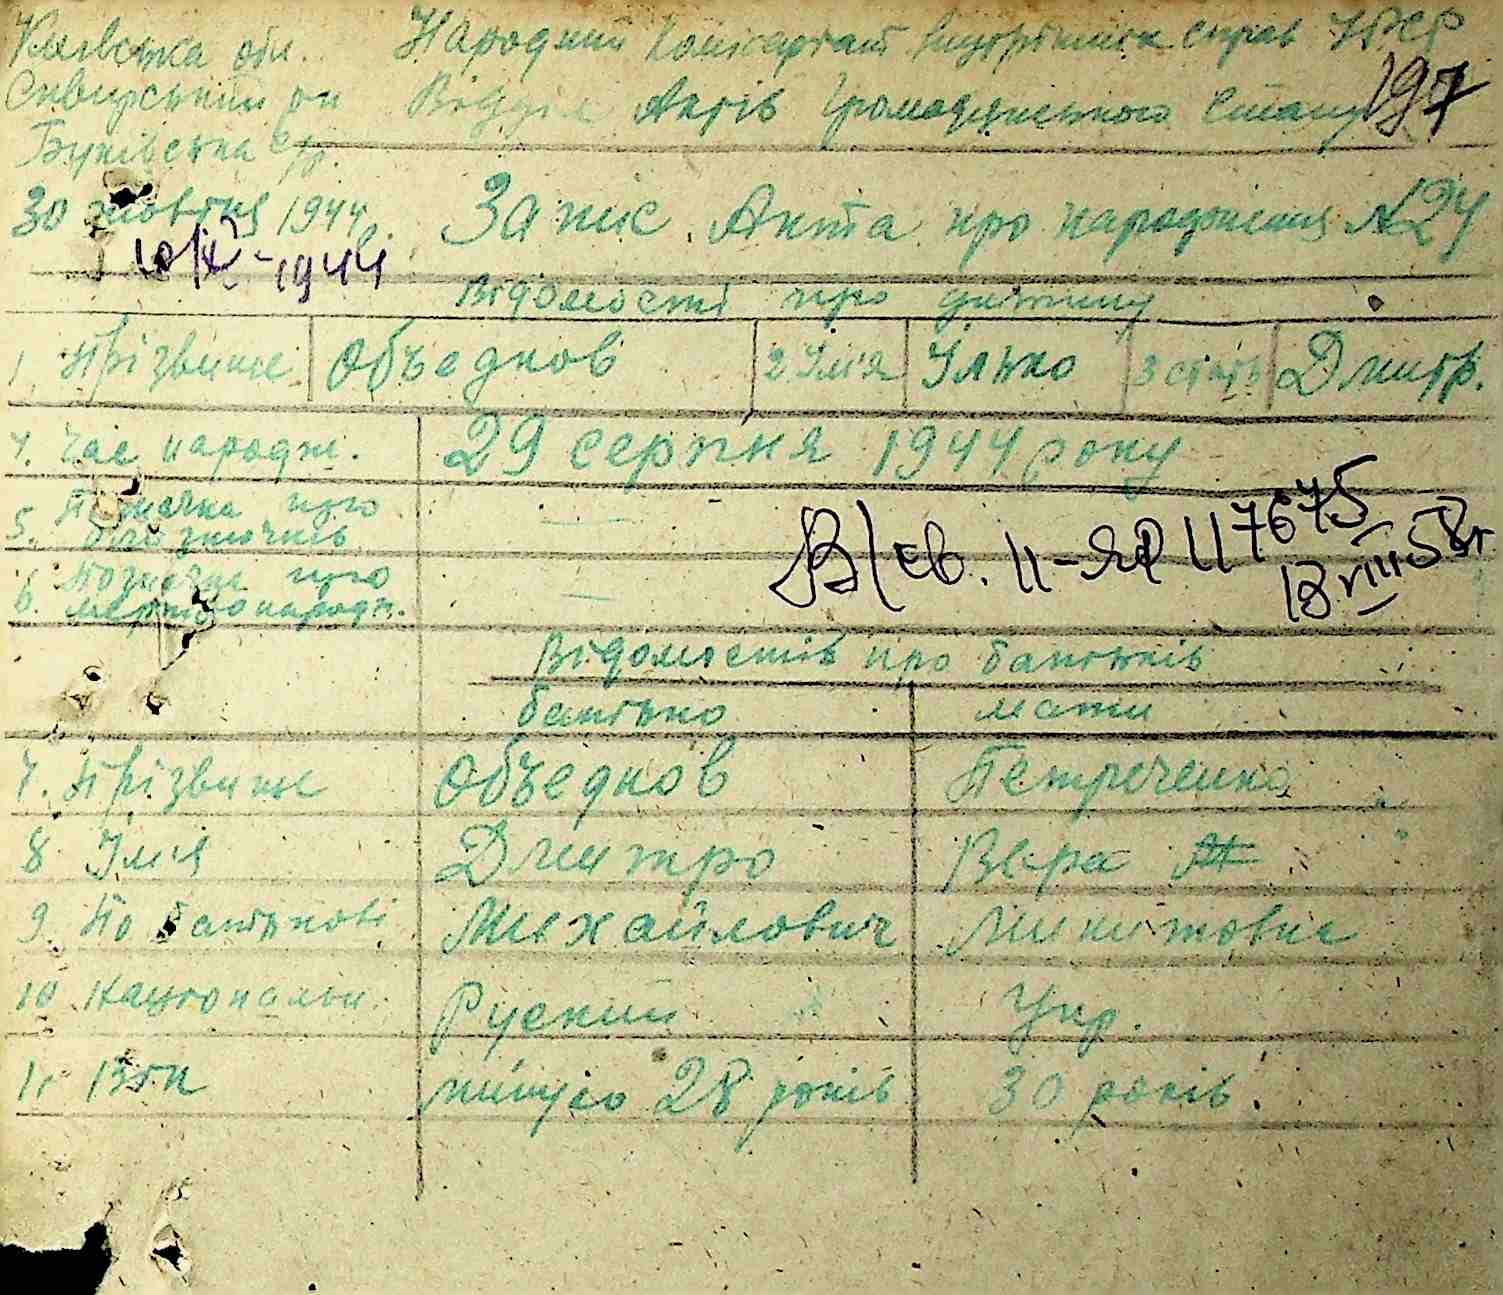 Київська обл. Народний Комісаріат Внутрішніх справ УРСР
Сквирський рн Відділ Актів Громадянського Стану 197
Буківська с/р.
30 жовтня 1944р. Запис Акта про народження №24
10/IX - 1944
Відомості про дитину
1. Прізвище Объедков 2 Ім'я Ілько 3 стать Дмитр.
4. Час народж. 29 серпня 1944 року
5. Помітка про близнючків — —
В/св. II-ЯР 117675
13 VIII 58г
6. Помітка про мертвонародж. — —
Відомостів про батьків
батько мати
7. Прізвище Объедков Петреченко
8 Ім'я Дмитро Вера
9. По батькові Михайлович Микитовна
10 Національн. Руский Укр.
11 Вік 28 років 30 років